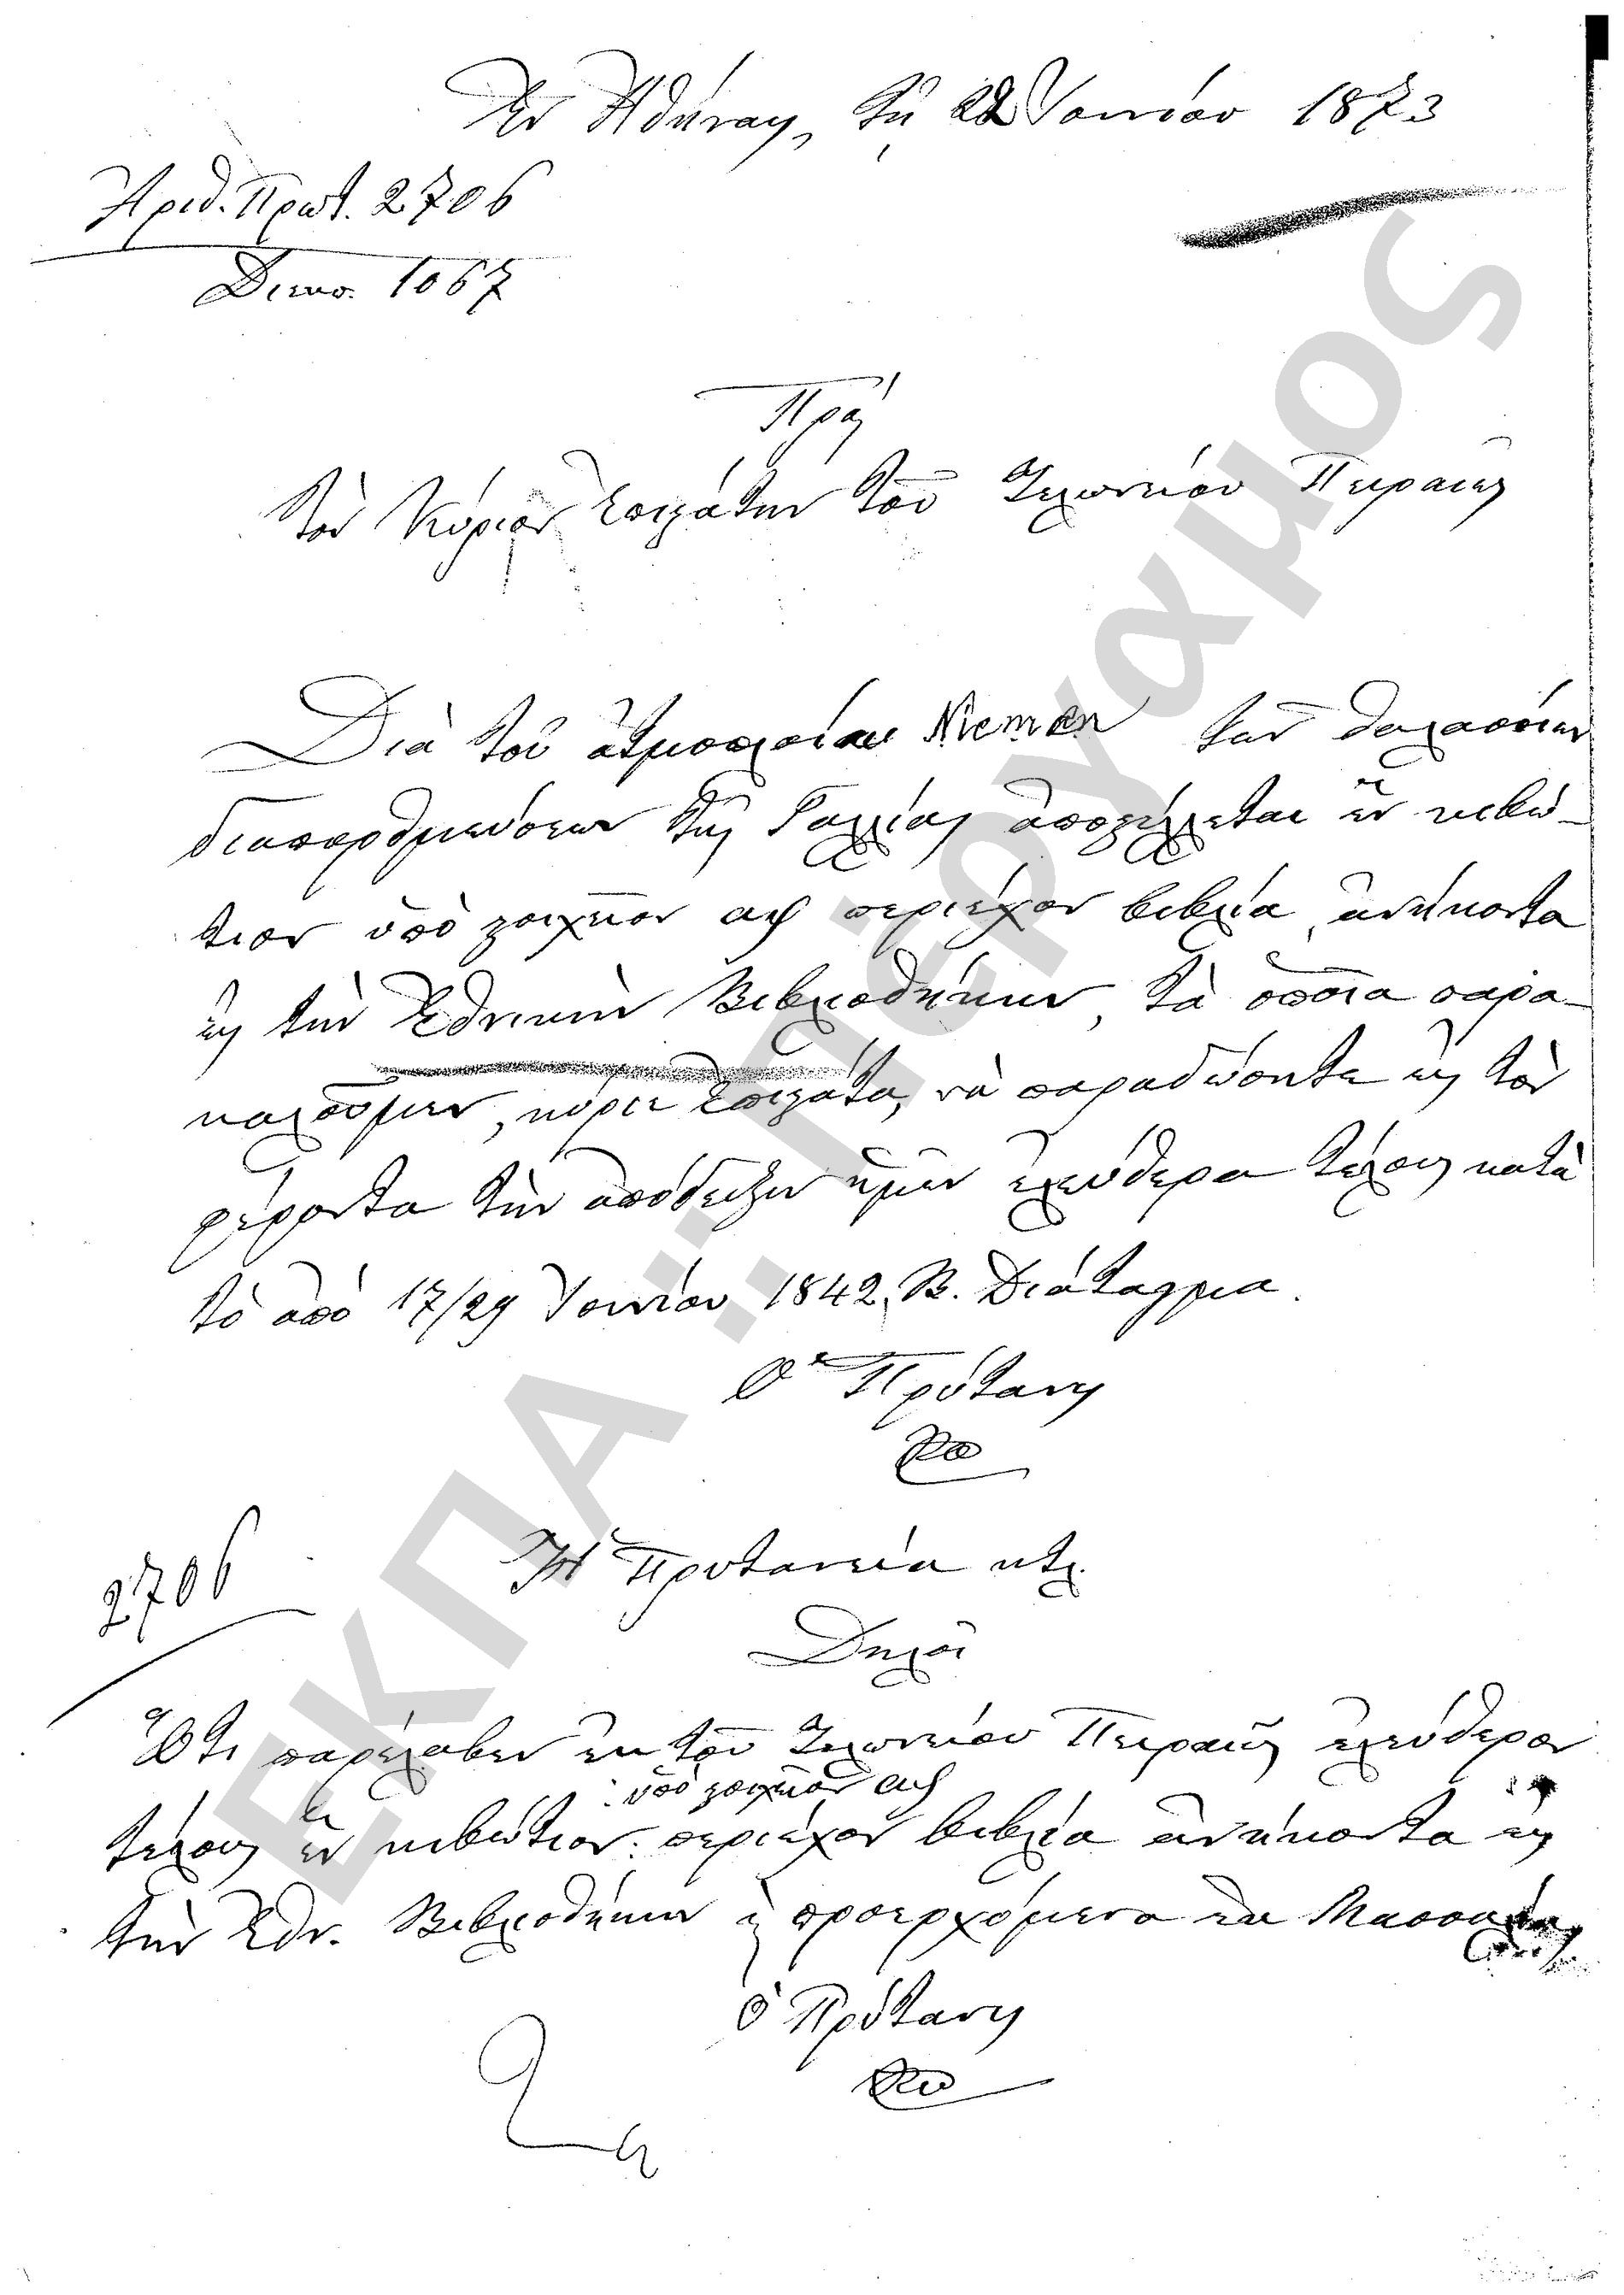 Ἐν Ἀθήναις, τῇ 22 Ἰουνίου 1873
Ἀριθ. Πρωτ. 2706
Διεκπ. 1067
Πρὸς
τὸν Κύριον Ἐπιστάτην τοῦ Τελωνείου Πειραιῶς
Διὰ τοῦ ἀτμοπλοίου Niemen τῶν θαλασσίων
διαπορθμεύσεων τῆς Γαλλίας ἀποστέλλεται ἓν κιβώ-
τιον ὑπὸ στοιχεῖον περιέχον βιβλία ἀνήκοντα
εἰς τὴν Ἐθνικὴν Βιβλιοθήκην, τὰ ὁποῖα παρα-
καλοῦμεν, κύριε Ἐπιστάτα, νὰ παραδώσητε εἰς τὸν
φέροντα τὴν ἀπόδειξιν ἡμῶν ἐλεύθερα τέλους κατὰ
τὸ ἀπὸ 17/29 Ἰουνίου 1842 Β. Διάταγμα.
Ὁ Πρύτανις
2706
Ἡ Πρυτανεία κτλ.
Δηλοῖ
Ὅτι παρέλαβεν ἐκ τοῦ Τελωνείου Πειραιῶς ἐλεύθερον
ὑπὸ στοιχεῖον
τέλους ἓν κιβώτιον περιέχον βιβλία ἀνήκοντα εἰς
τὴν Ἐθν. Βιβλιοθήκην προερχόμενα ἐκ Μασσαλίας
ὁ Πρύτανις
ΕΚΠΑ :: Πέργαμος